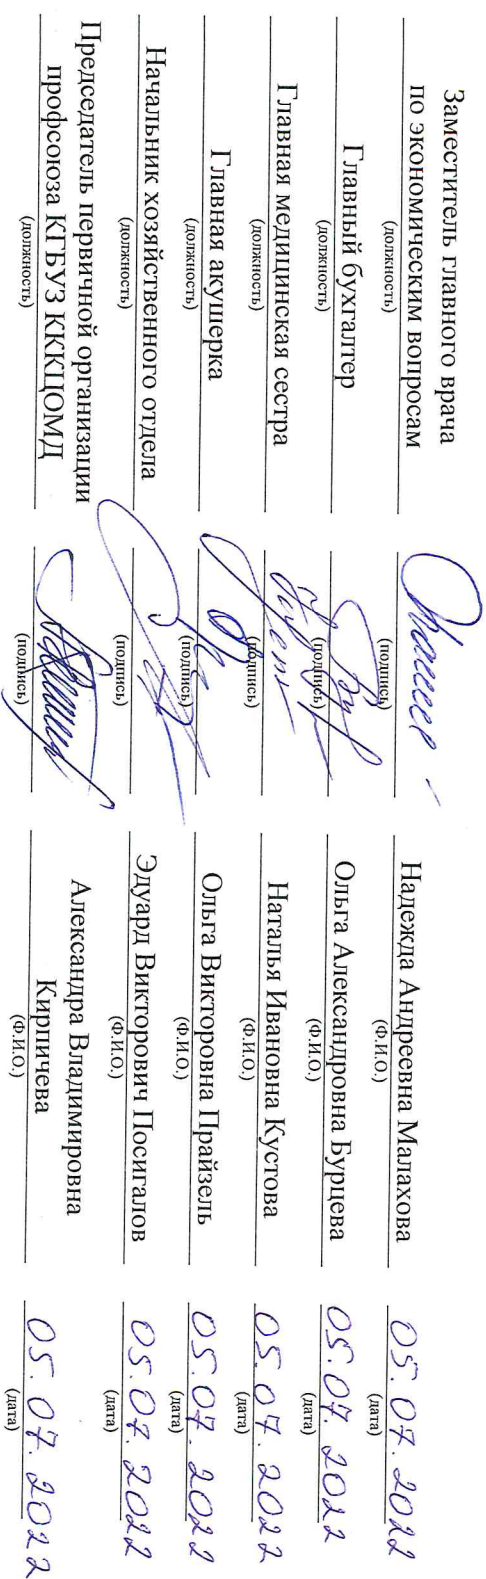 Заместитель главного врача
по экономическим вопросам Надежда Андреевна Малахова 05.07.2022
(должность) (подпись) (Ф.И.О.) (дата)
Главный бухгалтер Ольга Александровна Бурцева 05.07.2022
(должность) (подпись) (Ф.И.О.) (дата)
Главная медицинская сестра Наталья Ивановна Кустова 05.07.2022
(должность) (подпись) (Ф.И.О.) (дата)
Главная акушерка Ольга Викторовна Прайзель 05.07.2022
(должность) (подпись) (Ф.И.О.) (дата)
Начальник хозяйственного отдела Эдуард Викторович Посигалов 05.07.2022
(должность) (подпись) (Ф.И.О.) (дата)
Председатель первичной организации Александра Владимировна
профсоюза КГБУЗ КККЦОМД Кирпичева 05.07.2022
(должность) (подпись) (Ф.И.О.) (дата)